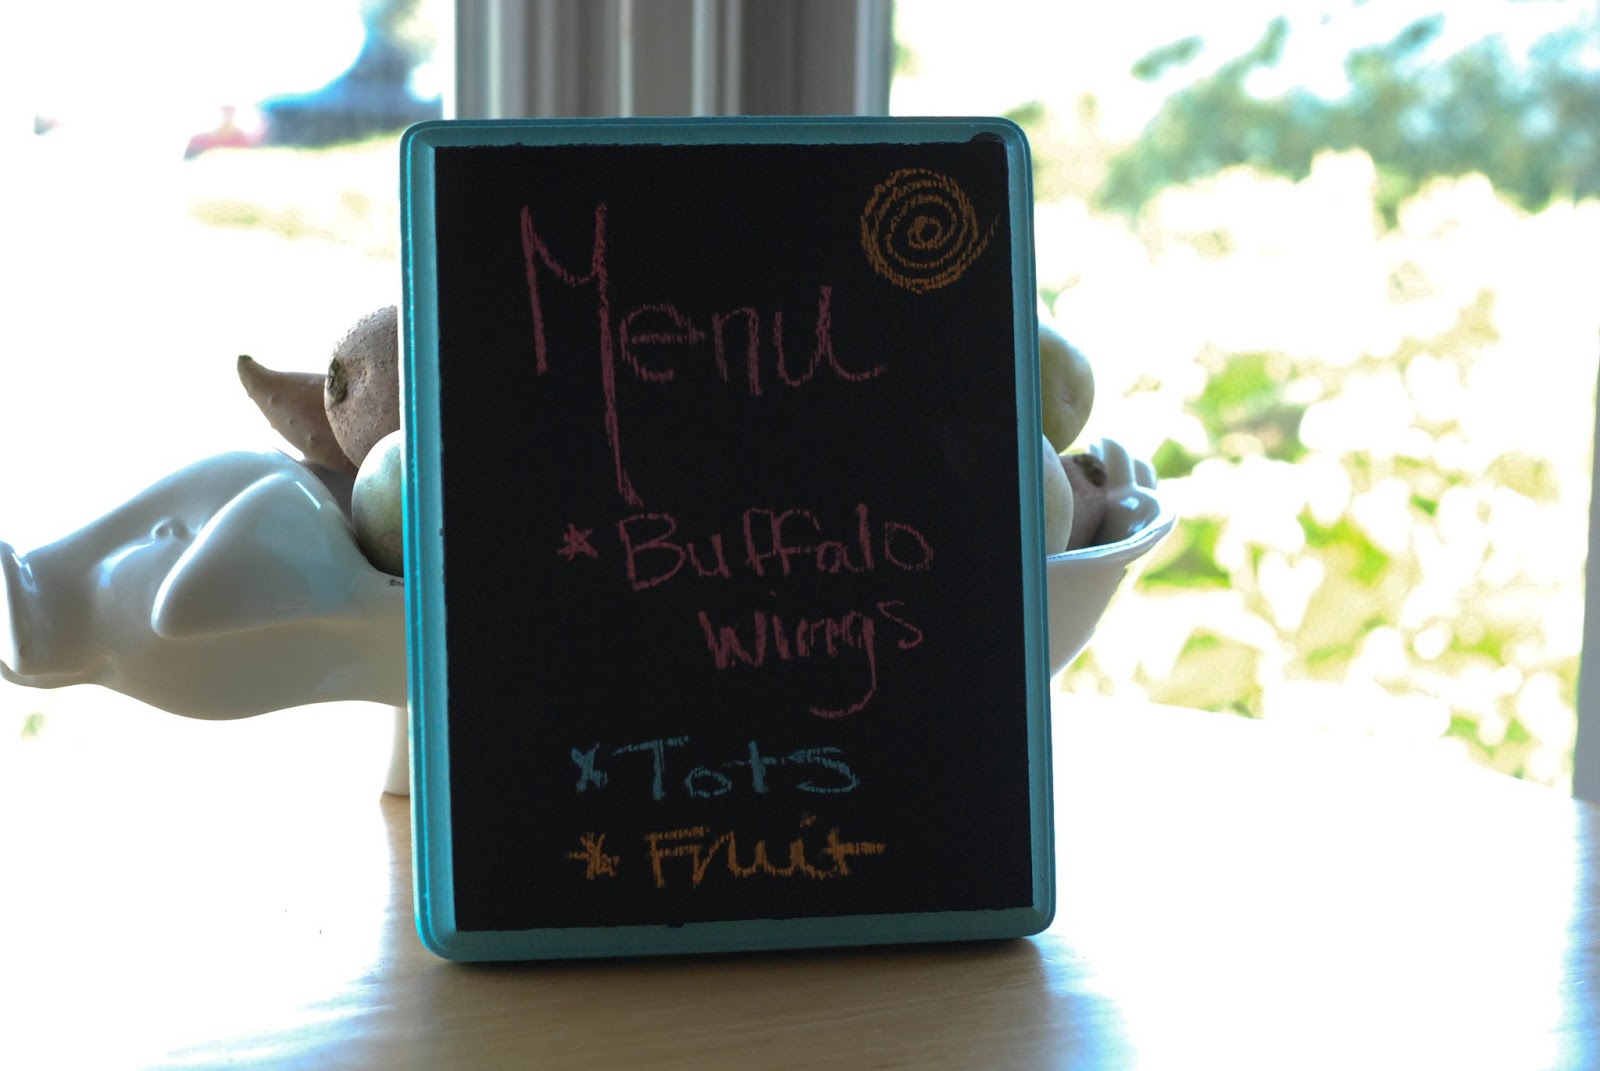 Menu
* Buffalo
wings
* Tots
* Fruit